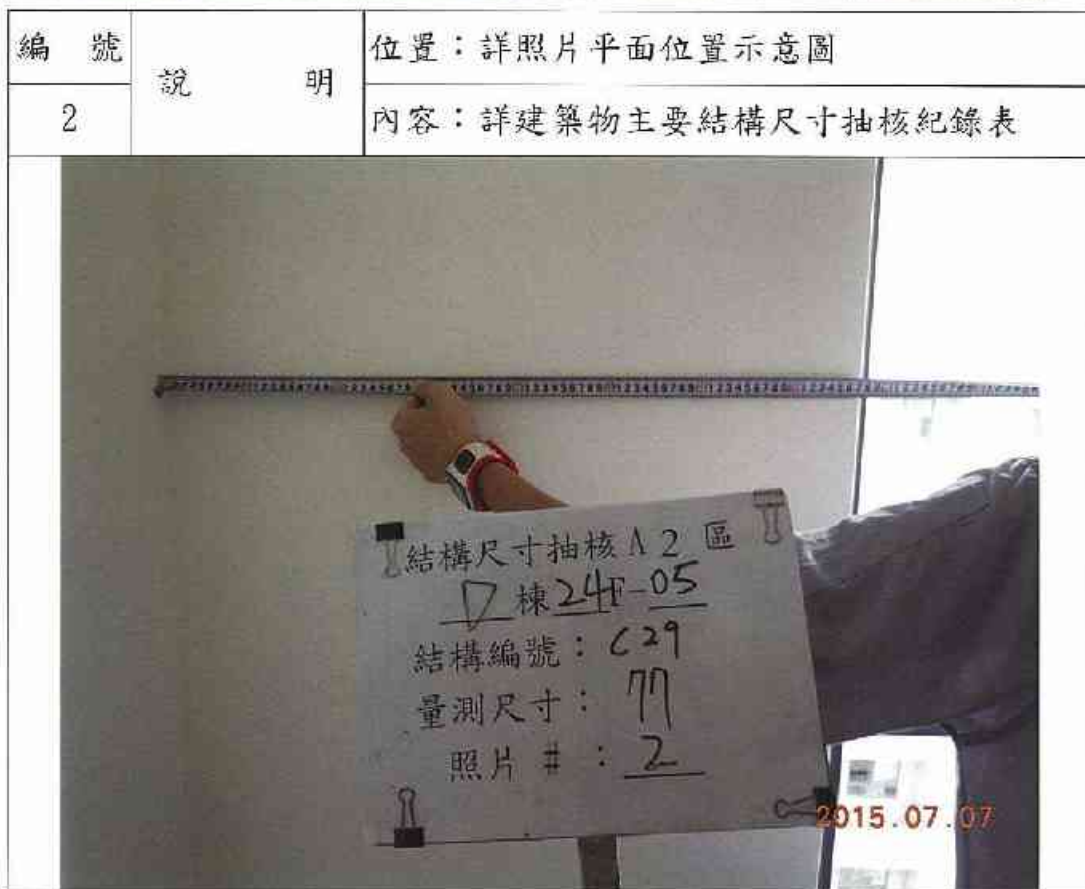 編 號
說 明
位置：詳照片平面位置示意圖
2
內容：詳建築物主要結構尺寸抽核紀錄表
結構尺寸抽核 A 2 區
D 棟 24F-05
結構編號：C29
量測尺寸：77
照片 #：2
2015.07.07